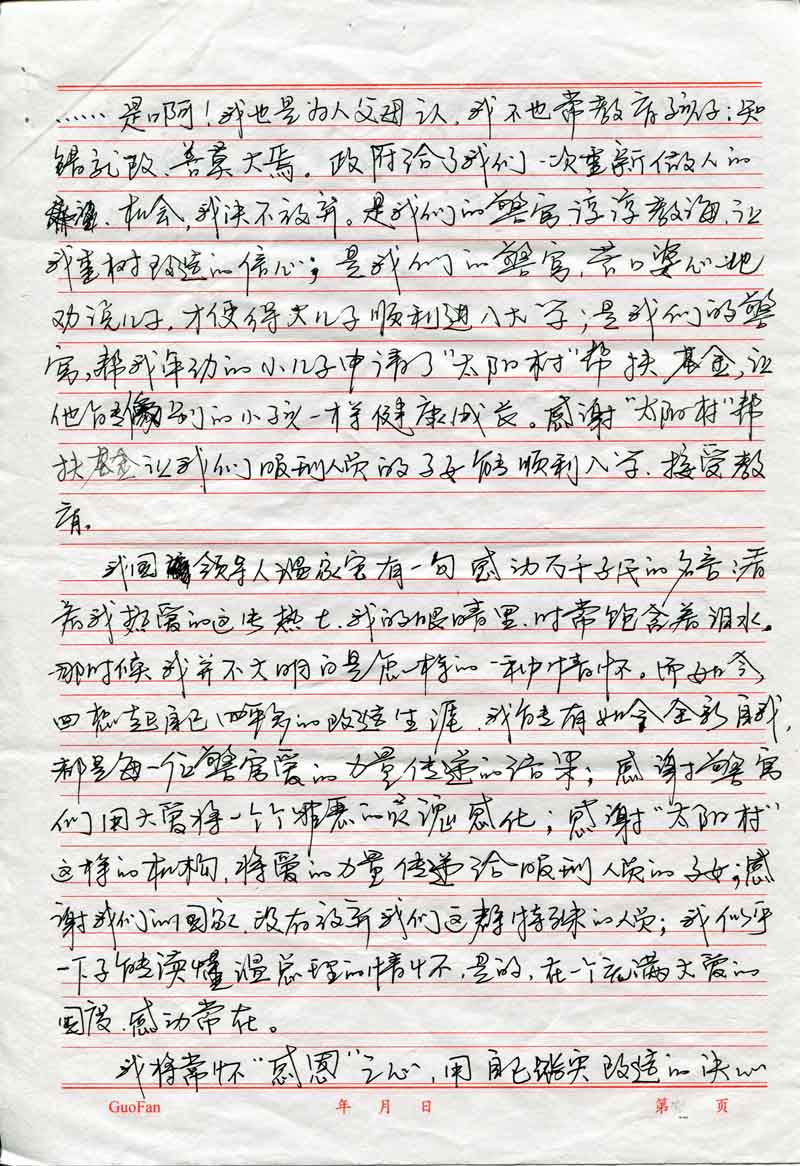 ……是啊！我也是为人父母认，我不也常教育孩子：知
错就改、善莫大焉。政府给了我们一次重新做人的
机会，我决不放弃。是我们的警官，谆谆教诲，让
我重树改造的信心；是我们的警官，苦口婆心地
劝说儿子，才使得大儿子顺利进入大学；是我们的警
官，帮我年幼的小儿子申请了“太阳村”帮扶基金，让
他能像别的小孩一样健康成长。感谢“太阳村”帮
扶基金让我们服刑人员的子女能顺利入学、接受教
育。
我国领导人温家宝有一句感动万千子民的名言：看
着我热爱的这片热土，我的眼睛里，时常饱含着泪水。
那时候我并不太明白是怎样的一种情怀。而如今，
回想起自己四年多的改造生涯，我能有如今全新自我，
都是每一位警官爱的力量传递的结果；感谢警官
们用大爱将一个个丑恶的灵魂感化；感谢“太阳村”
这样的机构，将爱的力量传递给服刑人员的子女；感
谢我们的国家，没有放弃我们这群特殊的人员；我似乎
一下子能读懂温总理的情怀，是的，在一个充满大爱的
国度，感动常在。
我将常怀“感恩”之心，用自己踏实改造的决心
GuoFan 年 月 日 第 页